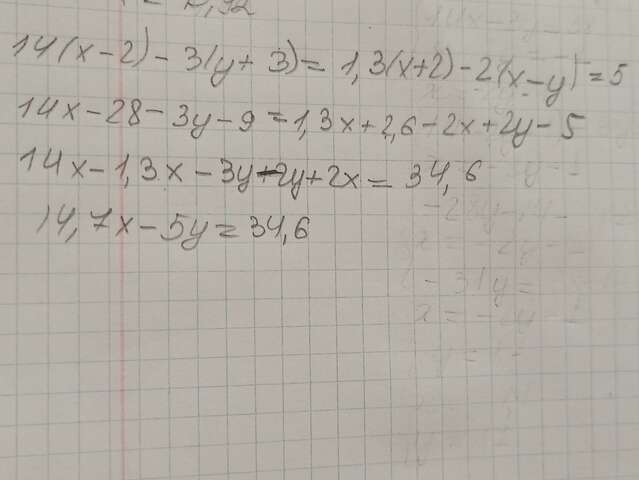 14(x-2)-3(y+3)=1,3(x+2)-2(x-y)=5
14x-28-3y-9=1,3x+2,6-2x+2y-5
14x-1,3x-3y-2y+2x=34,6
14,7x-5y=34,6